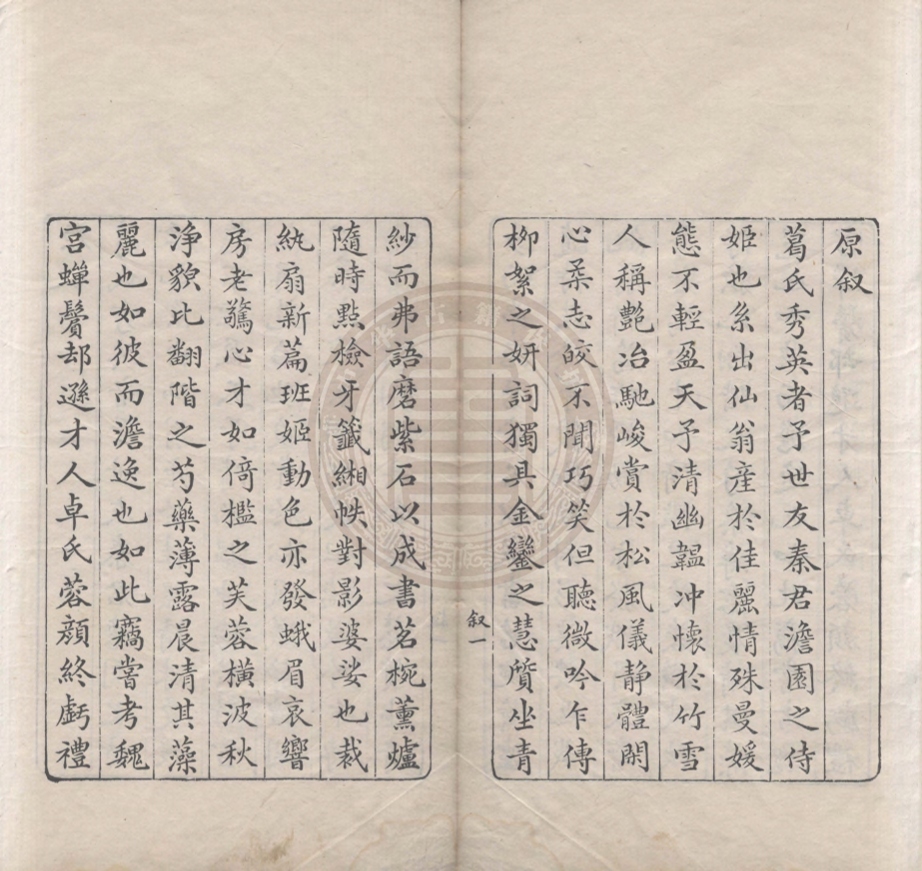 原叙
葛氏秀英者予世友秦君澹園之侍
姬也系出仙翁産於佳麗情殊曼媛
態不輕盈天予清幽韞冲懷於竹雪
人稱艷冶馳峻賞於松風儀静體閑
心柔志皎不聞巧笑但聽微吟乍傳
柳絮之妍詞獨具金鑾之慧質坐青
叙一
紗而弗語磨紫石以成書茗椀薰爐
隨時點檢牙籤緗帙對影婆娑也裁
紈扇新篇班姬動色亦發蛾眉哀響
房老驚心才如倚檻之芙蓉横波秋
浄貌比翻階之芍藥薄露晨清其藻
麗也如彼而澹逸也如此竊嘗考魏
宫蟬鬢却遜才人卓氏蓉顔終虧禮